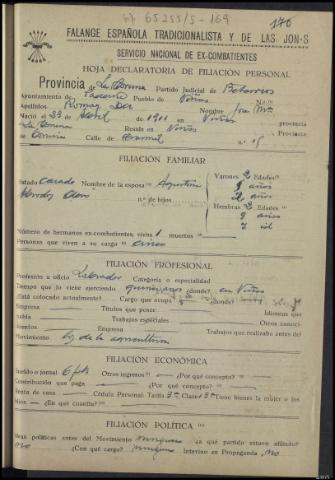 65255/5-169
170
FALANGE ESPAÑOLA TRADICIONALISTA Y DE LAS JON-S
SERVICIO NACIONAL DE EX-COMBATIENTES
HOJA DECLARATORIA DE FILIACION PERSONAL
Provincia de La Coruña Partido Judicial de Betanzos
Ayuntamiento de Pueblo de Viñas
Apellidos Romay Nombre José Mª
Nació el 23 de Abril de 1901 en Viñas provincia
La Coruña Reside en Viñas provincia
Coruña Calle de n.º 15
FILIACIÓN FAMILIAR
Estado Casado Nombre de la esposa Agustina
n.º de hijos
Varones 2 Edades
9 años
2 años
Hembras 2 Edades
9 años
7 id
Número de hermanos ex-combatientes, vivos 1 muertos
Personas que viven a su cargo cinco
FILIACIÓN PROFESIONAL
Profesión u oficio Labrador Categoría o especialidad
Tiempo que lo viene ejerciendo ¿dónde? en Viñas
Está colocado actualmente? Cargo que ocupa ¿dónde?
Empresa Títulos que posee Idiomas que
habla Trabajos especiales Otros conoci-
mientos Empresa Trabajos que realizaba antes del
Movimiento los de la agricultura
FILIACIÓN ECONÓMICA
Sueldo o jornal 6 pts Otros ingresos? ¿Por qué concepto?
Contribución que paga ¿Por qué concepto?
Renta de casa Cédula Personal Tarifa 3ª Clase 13ª Tiene bienes la mujer o los
hijos ¿En qué cuantía?
FILIACIÓN POLÍTICA
Ideas políticas antes del Movimiento ninguna ¿a qué partido estuvo afiliado?
No ¿Con qué cargo? ninguno Intervino en Propaganda No